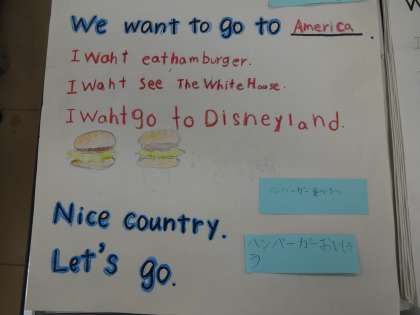 We want to go to America.
I waht eat hamburger.
I waht See The White Hoose.
I wahtgo to Disneyland.
Nice country.
Let's go.
ハンバーガーおいしそう
ハンバーガーおいしそ
う